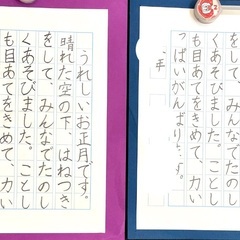 うれしいお正月です。
晴れた空の下、はねつき
をして、みんなでたのし
くあそびました。ことし
も目あてをきめて、力い
をして、みんなでたのし
くあそびました。ことし
も目あてをきめて、力い
っぱいがんばります。
一年